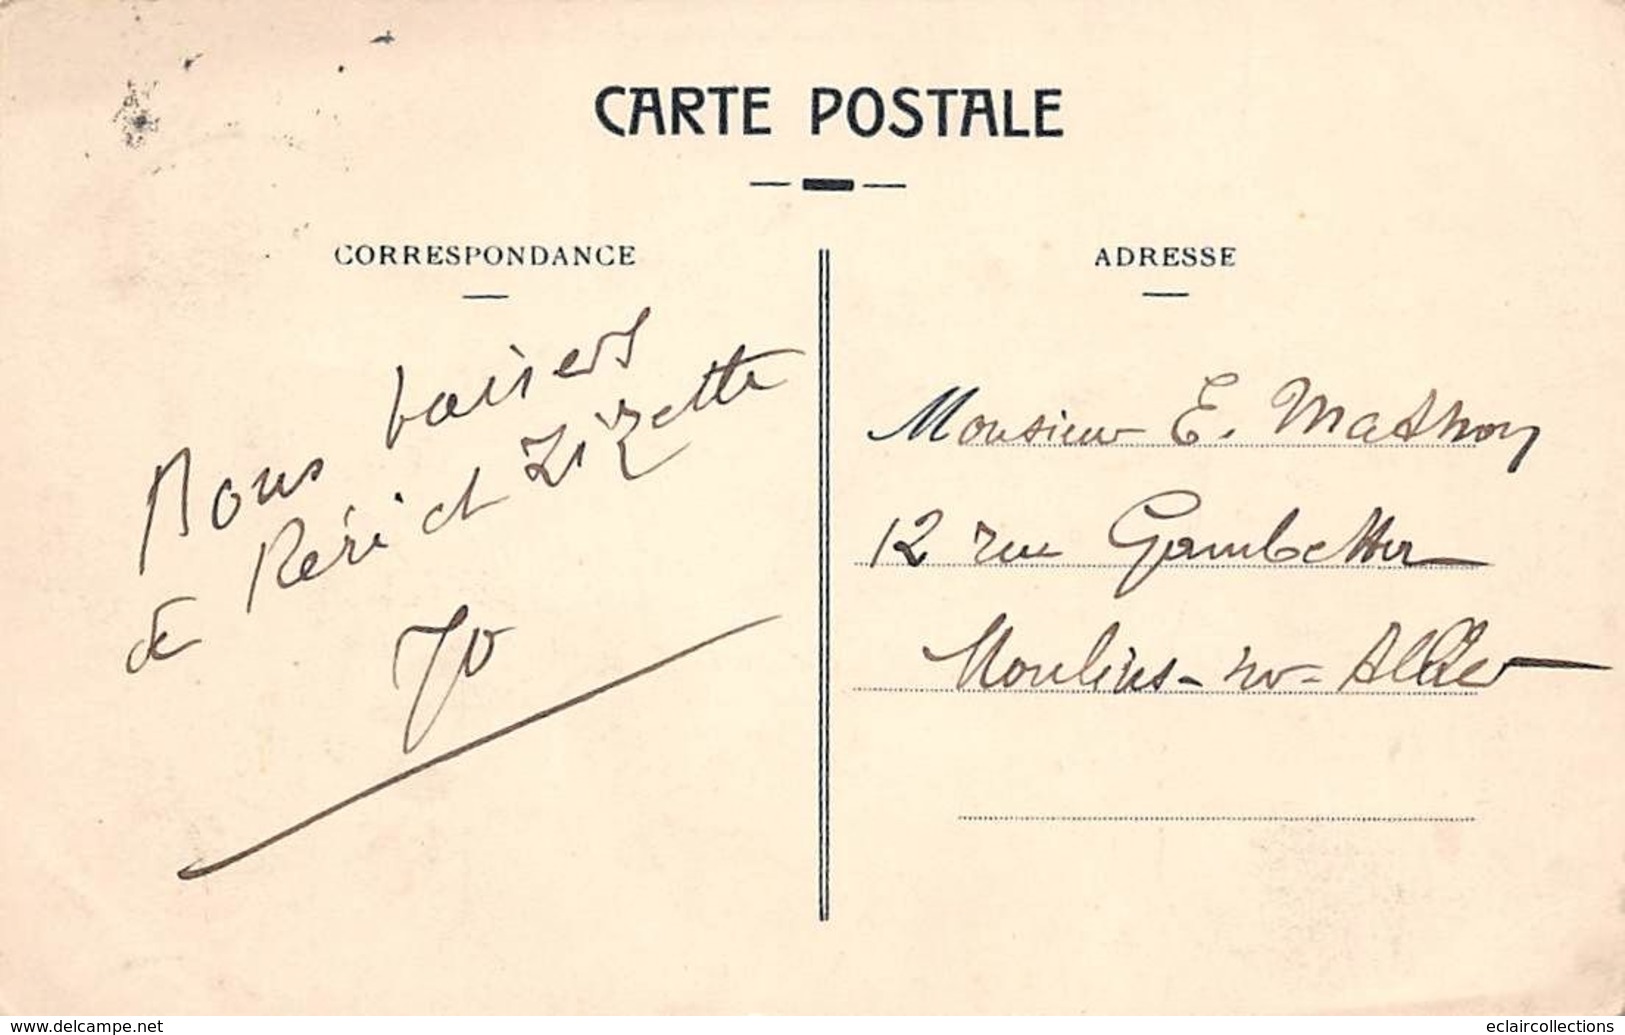 CARTE POSTALE
CORRESPONDANCE
bons baisers
de Réri et Zizette
Jo
ADRESSE
Monsieur E. Mathon
12 rue Gambetta
Moulins-sur-Allier
www.delcampe.net
eclaircollections